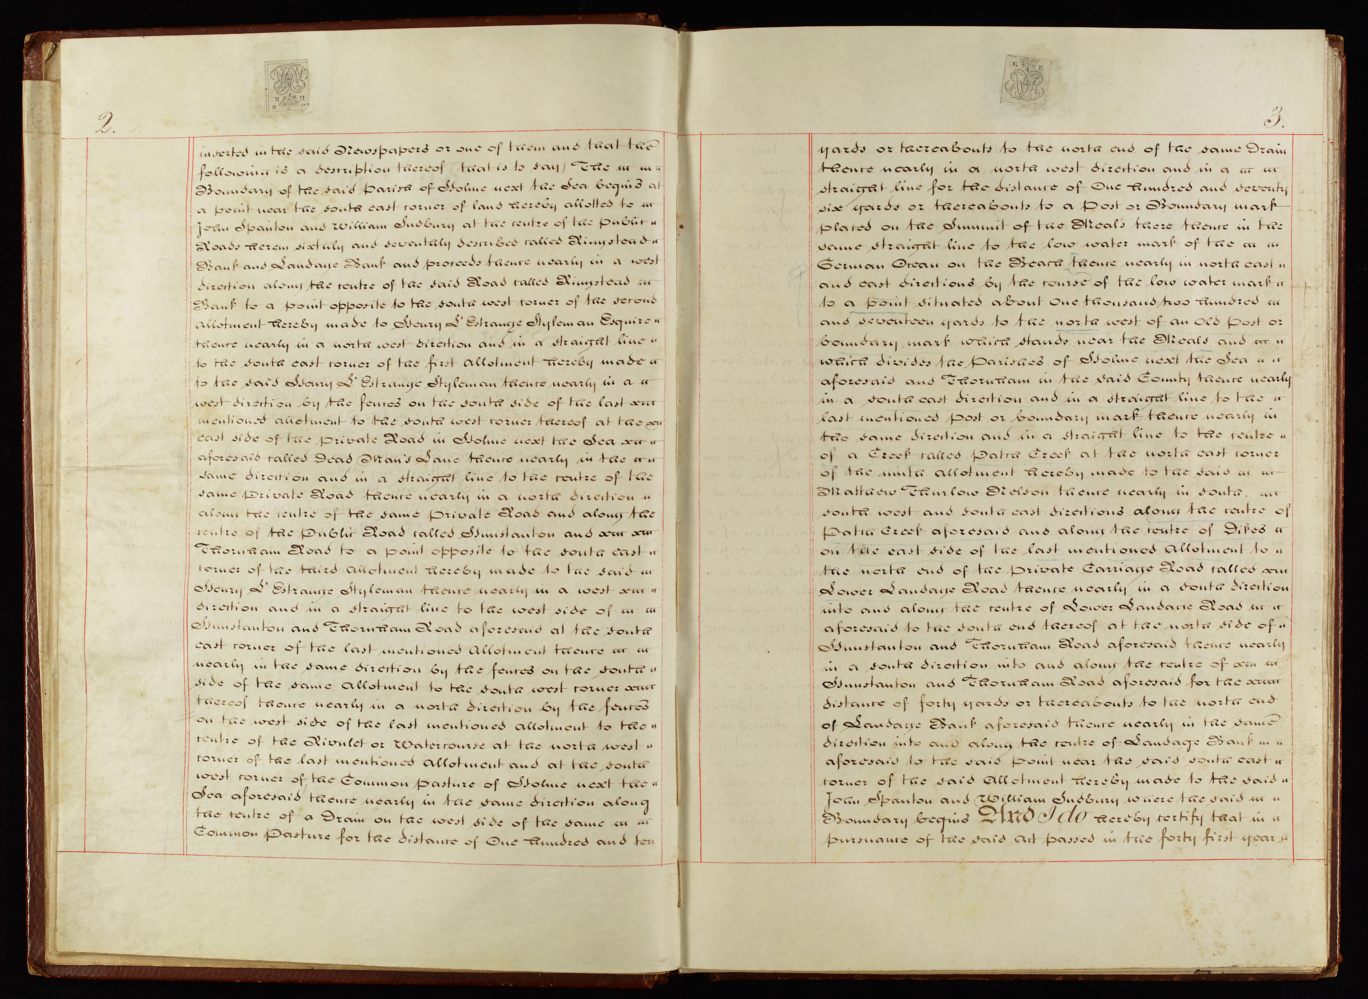 2.
inserted in the said Newspapers or one of them and that the
following is a description thereof (that is to say) The
Boundary of the said Parish of Holme next the Sea begins at
a point near the south east corner of land hereby allotted to
John Spanton and William Sudbury at the centre of the Public
Roads herein sixthly and seventhly described called Ringstead
Bank and Landage Bank and proceeds thence nearly in a west
direction along the centre of the said Road called Ringstead
Bank to a point opposite to the south west corner of the second
allotment hereby made to Henry L'Estrange Styleman Esquire
thence nearly in a north west direction and in a straight line
to the south east corner of the first allotment hereby made
to the said Henry L'Estrange Styleman thence nearly in a
west direction by the fences on the south side of the last
mentioned allotment to the south west corner thereof at the
east side of the private Road in Holme next the Sea
aforesaid called Dead Man's Lane thence nearly in the
same direction and in a straight line to the centre of the
same Private Road thence nearly in a north direction
along the centre of the same Private Road and along the
centre of the Public Road called Hunstanton and
Thornham Road to a point opposite to the south east
corner of the third allotment hereby made to the said
Henry L'Estrange Styleman thence nearly in a west
direction and in a straight line to the west side of
Hunstanton and Thornham Road aforesaid at the south
east corner of the last mentioned Allotment thence
nearly in the same direction by the fences on the south
side of the same Allotment to the south west corner
thereof thence nearly in a north direction by the fences
on the west side of the last mentioned allotment to the
centre of the Rivulet or Watercourse at the north west
corner of the last mentioned Allotment and at the south
west corner of the Common Pasture of Holme next the
Sea aforesaid thence nearly in the same direction along
the centre of a Drain on the west side of the same
Common Pasture for the distance of One hundred and ten
3.
yards or thereabouts to the north end of the same Drain
thence nearly in a north west direction and in a
straight line for the distance of One hundred and seventy
six yards or thereabouts to a Post or Boundary mark
placed on the Summit of the Meals there thence in the
same straight line to the low water mark of the
German Ocean on the Beach thence nearly in north east
and east directions by the course of the low water mark
to a point situated about One thousand two hundred
and seventeen yards to the north west of an Old Post or
boundary mark which stands near the Meals and
which divides the Parishes of Holme next the Sea
aforesaid and Thornham in the said County thence nearly
in a south east direction and in a straight line to the
last mentioned post or boundary mark thence nearly in
the same direction and in a straight line to the centre
of a Creek called Patch Creek at the north east corner
of the ninth allotment hereby made to the said
Matthew Thurlow Nelson thence nearly in south
south west and south east directions along the centre of
Patch Creek aforesaid and along the centre of Dikes
on the east side of the last mentioned Allotment to
the north end of the Private Carriage Road called
Lower Landage Road thence nearly in a south direction
into and along the centre of Lower Landage Road
aforesaid to the south end thereof at the north side of
Hunstanton and Thornham Road aforesaid thence nearly
in a south direction into and along the centre of
Hunstanton and Thornham Road aforesaid for the
distance of forty yards or thereabouts to the north end
of Landage Bank aforesaid thence nearly in the same
direction into and along the centre of Landage Bank
aforesaid to the said point near the said south east
corner of the said Allotment hereby made to the said
John Spanton and William Sudbury where the said
Boundary begins And I do hereby certify that in
pursuance of the said Act passed in the forty first year